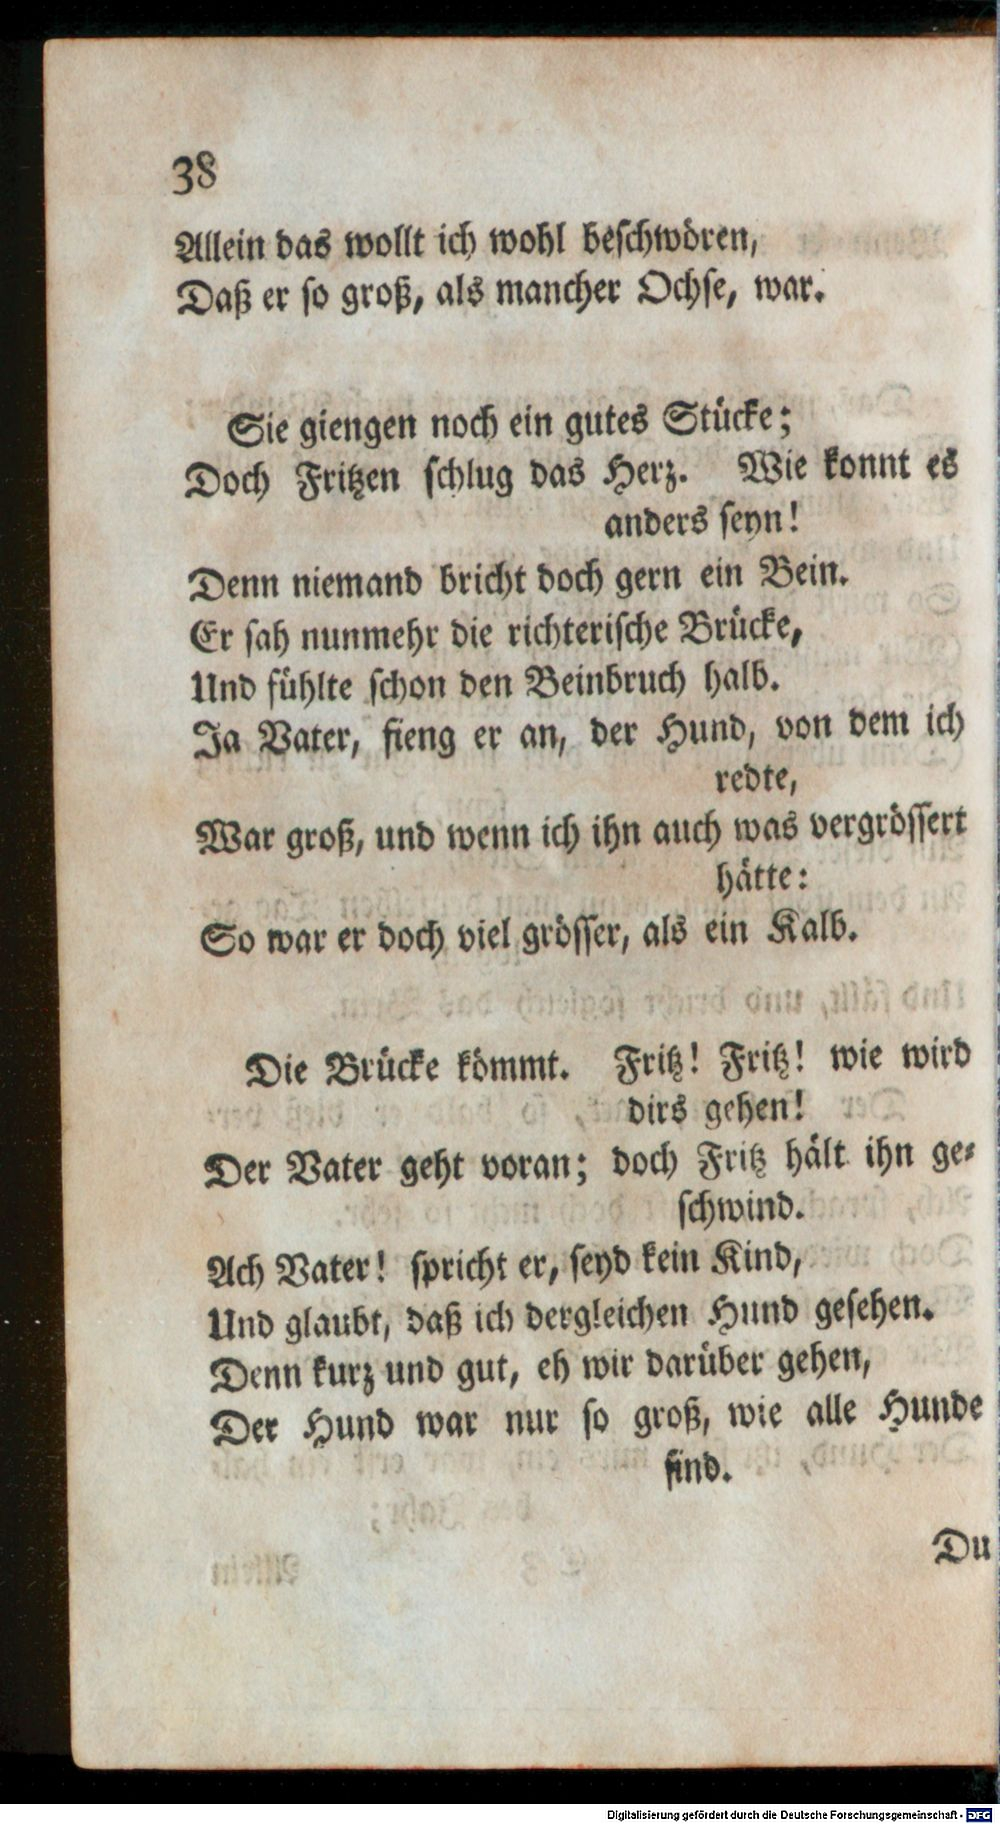 38
Allein das wollt ich wohl beschwören,
Daß er so groß, als mancher Ochse, war.
Sie giengen noch ein gutes Stücke;
Doch Fritzen schlug das Herz. Wie konnt es
anders seyn!
Denn niemand bricht doch gern ein Bein.
Er sah nunmehr die richterische Brücke,
Und fühlte schon den Beinbruch halb.
Ja Vater, fieng er an, der Hund, von dem ich
redte,
War groß, und wenn ich ihn auch was vergrössert
hätte:
So war er doch viel grösser, als ein Kalb.
Die Brücke kömmt. Fritz! Fritz! wie wird
dirs gehen!
Der Vater geht voran; doch Fritz hält ihn ge-
schwind.
Ach Vater! spricht er, seyd kein Kind,
Und glaubt, daß ich dergleichen Hund gesehen.
Denn kurz und gut, eh wir darüber gehen,
Der Hund war nur so groß, wie alle Hunde
sind.
Du
Digitalisierung gefördert durch die Deutsche Forschungsgemeinschaft - DFG